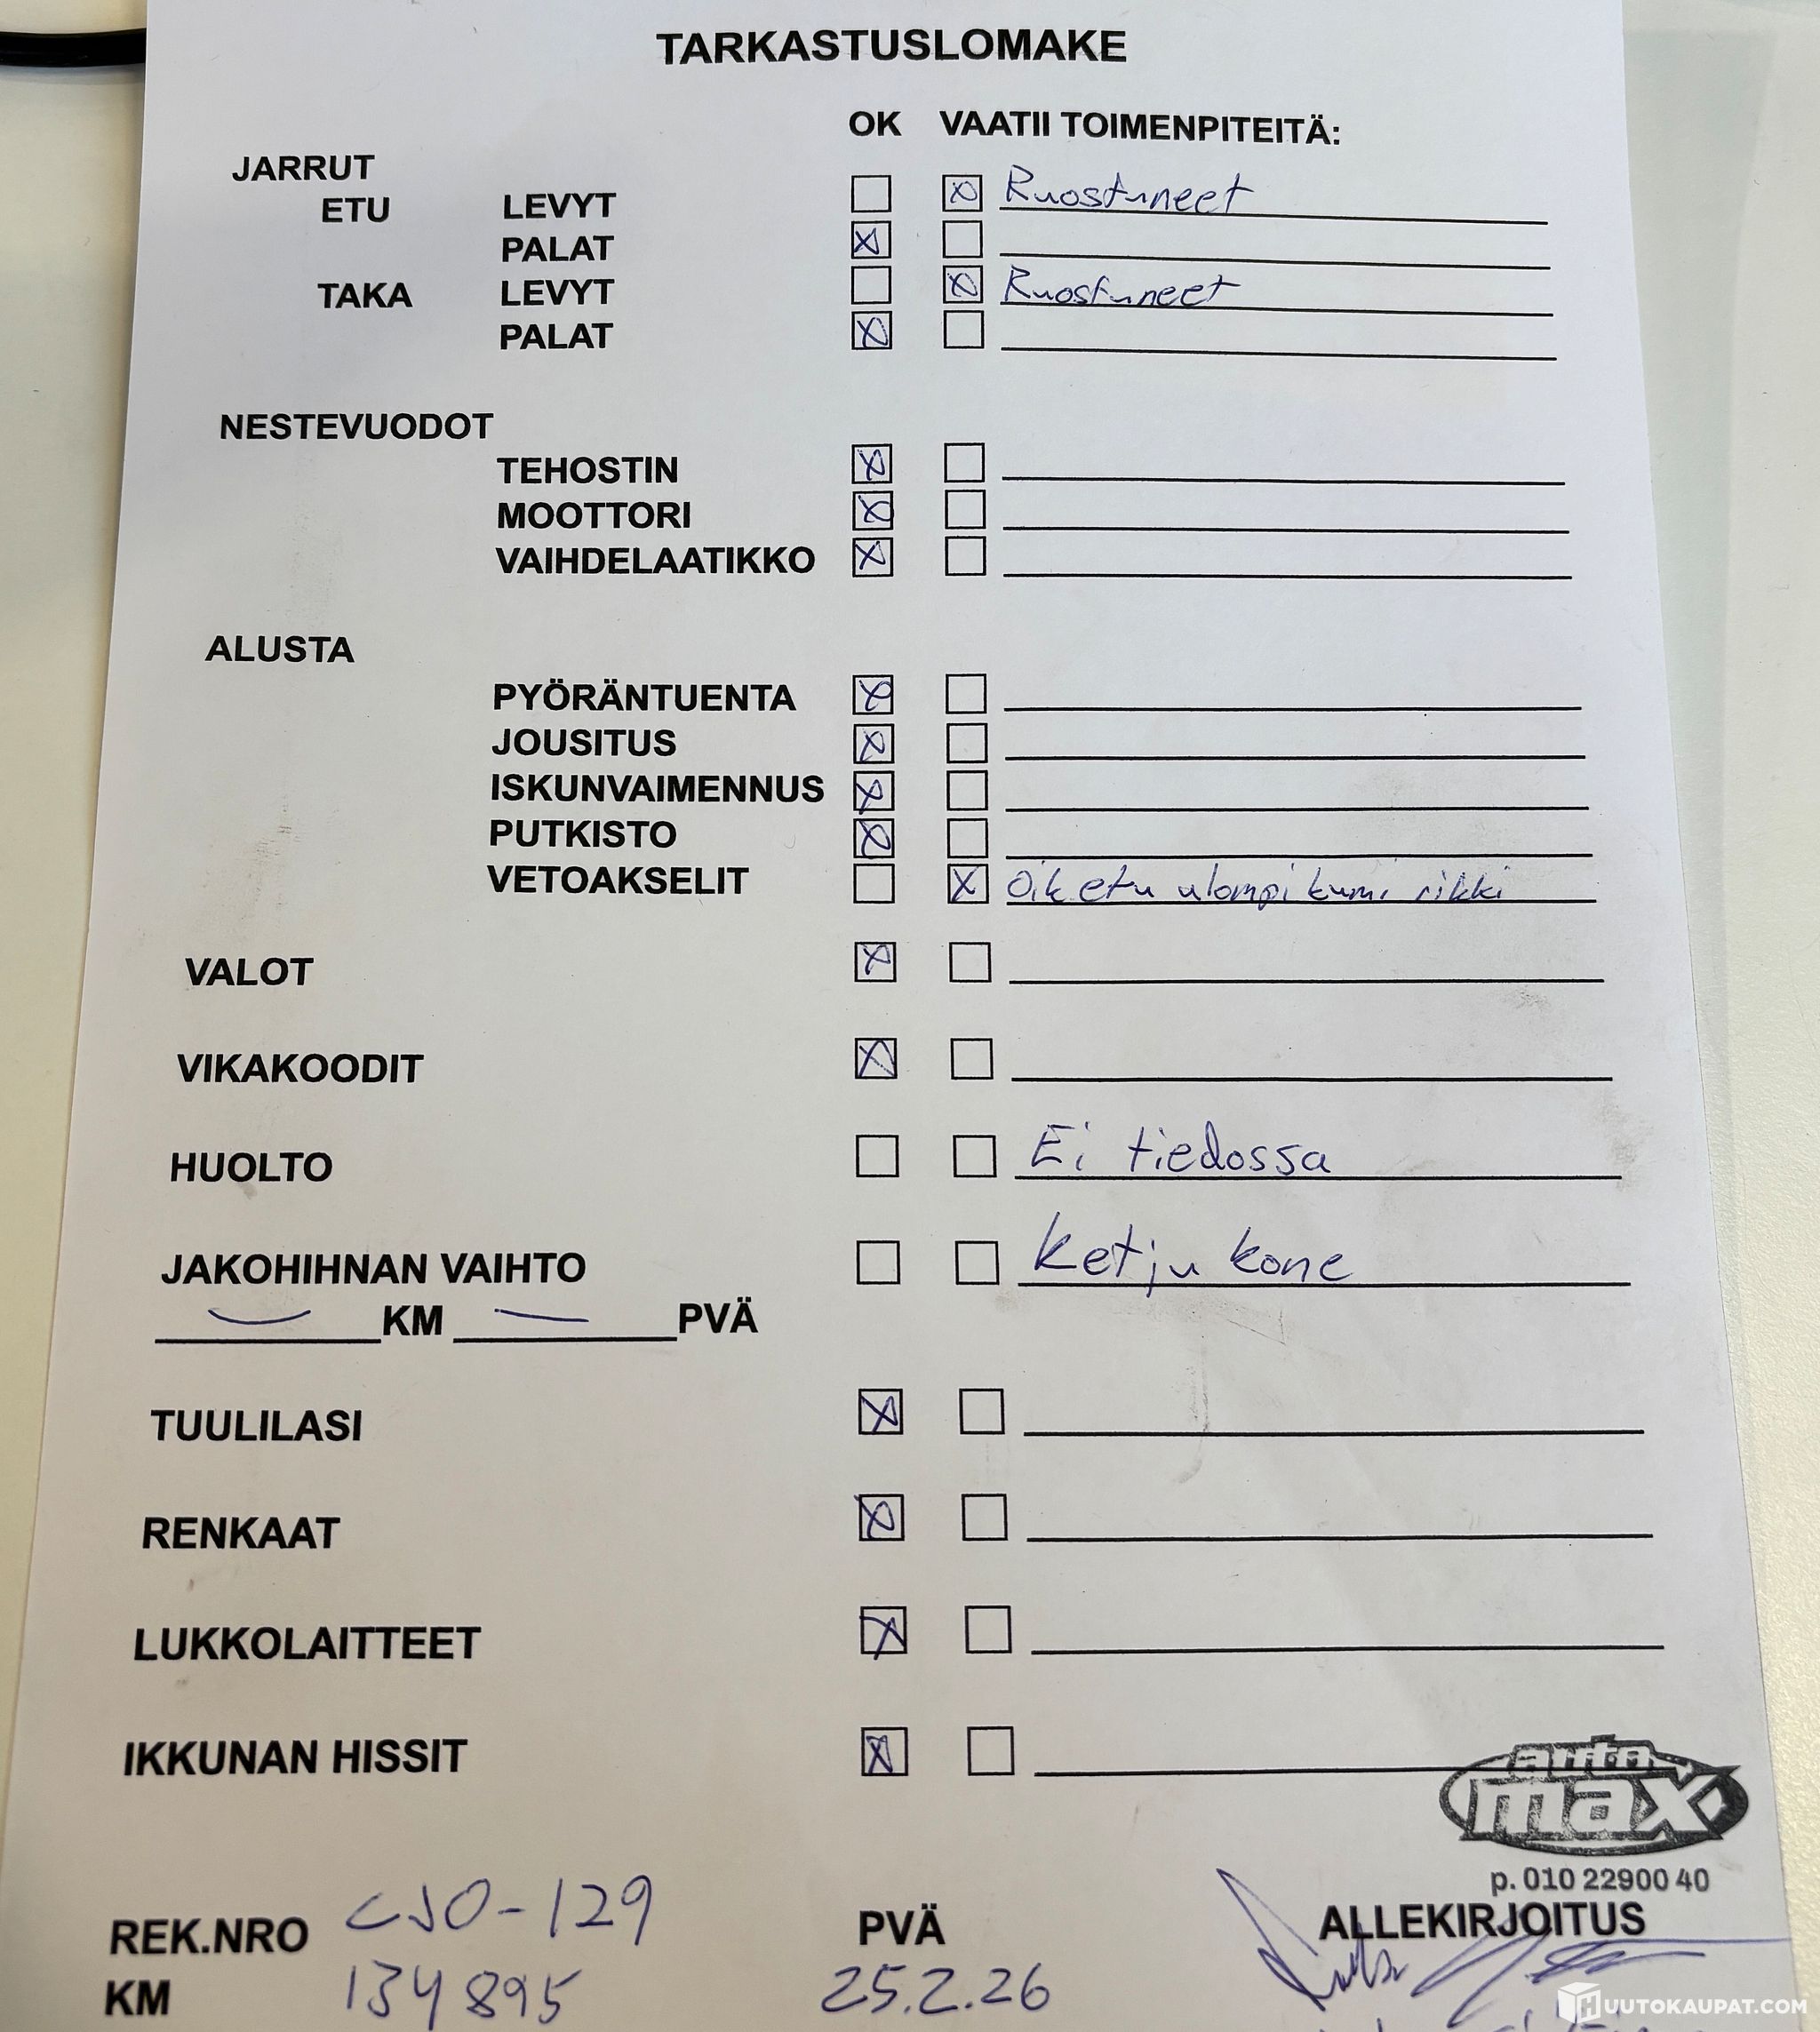 TARKASTUSLOMAKE
OK VAATII TOIMENPITEITÄ:
JARRUT
ETU LEVYT Ruostuneet
PALAT
TAKA LEVYT Ruostuneet
PALAT
NESTEVUODOT
TEHOSTIN
MOOTTORI
VAIHDELAATIKKO
ALUSTA
PYÖRÄNTUENTA
JOUSITUS
ISKUNVAIMENNUS
PUTKISTO
VETOAKSELIT oik etu ulompi kumi rikki
VALOT
VIKAKOODIT
HUOLTO Ei tiedossa
JAKOHIHNAN VAIHTO Ketju kone
KM PVÄ
TUULILASI
RENKAAT
LUKKOLAITTEET
IKKUNAN HISSIT
auto
max
p. 010 22900 40
REK.NRO CJO-129 PVÄ ALLEKIRJOITUS
KM 134895 25.2.26
HUUTOKAUPAT.COM